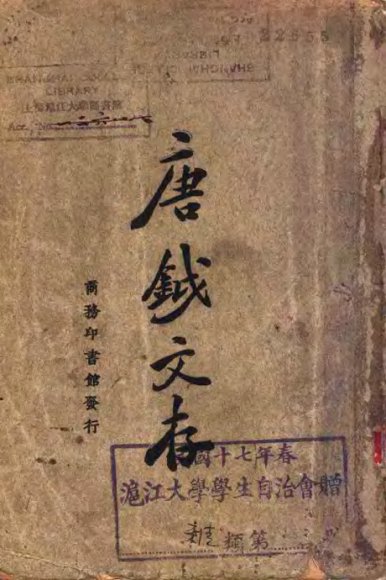 22555
SHANGHAI
LIBRARY
上海滬江大學圖書館
唐鉞文存
商務印書館發行
國十七年春
滬江大學學生自治會贈
第 類